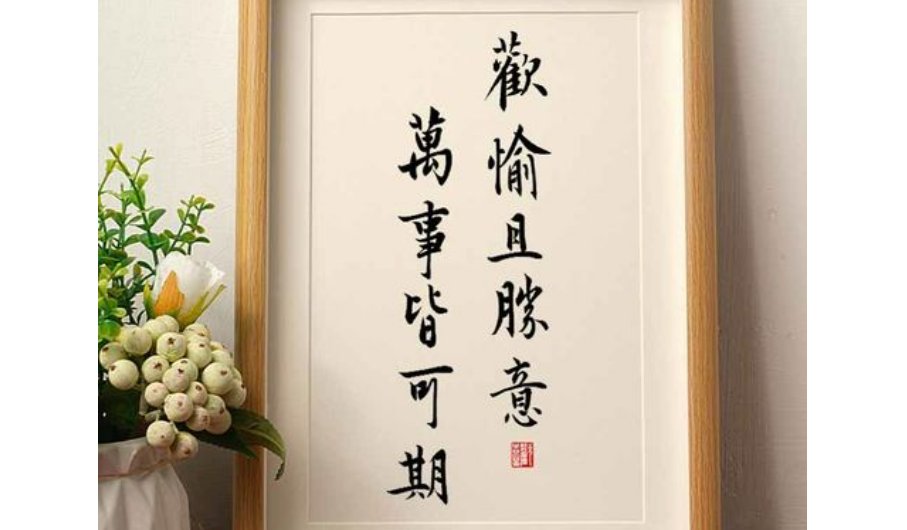 歡愉且勝意
萬事皆可期